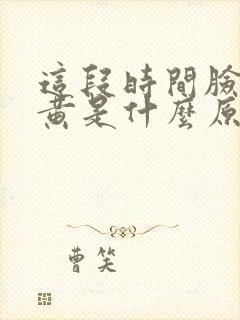 這段時間臉
黃是什麼原
曹笑